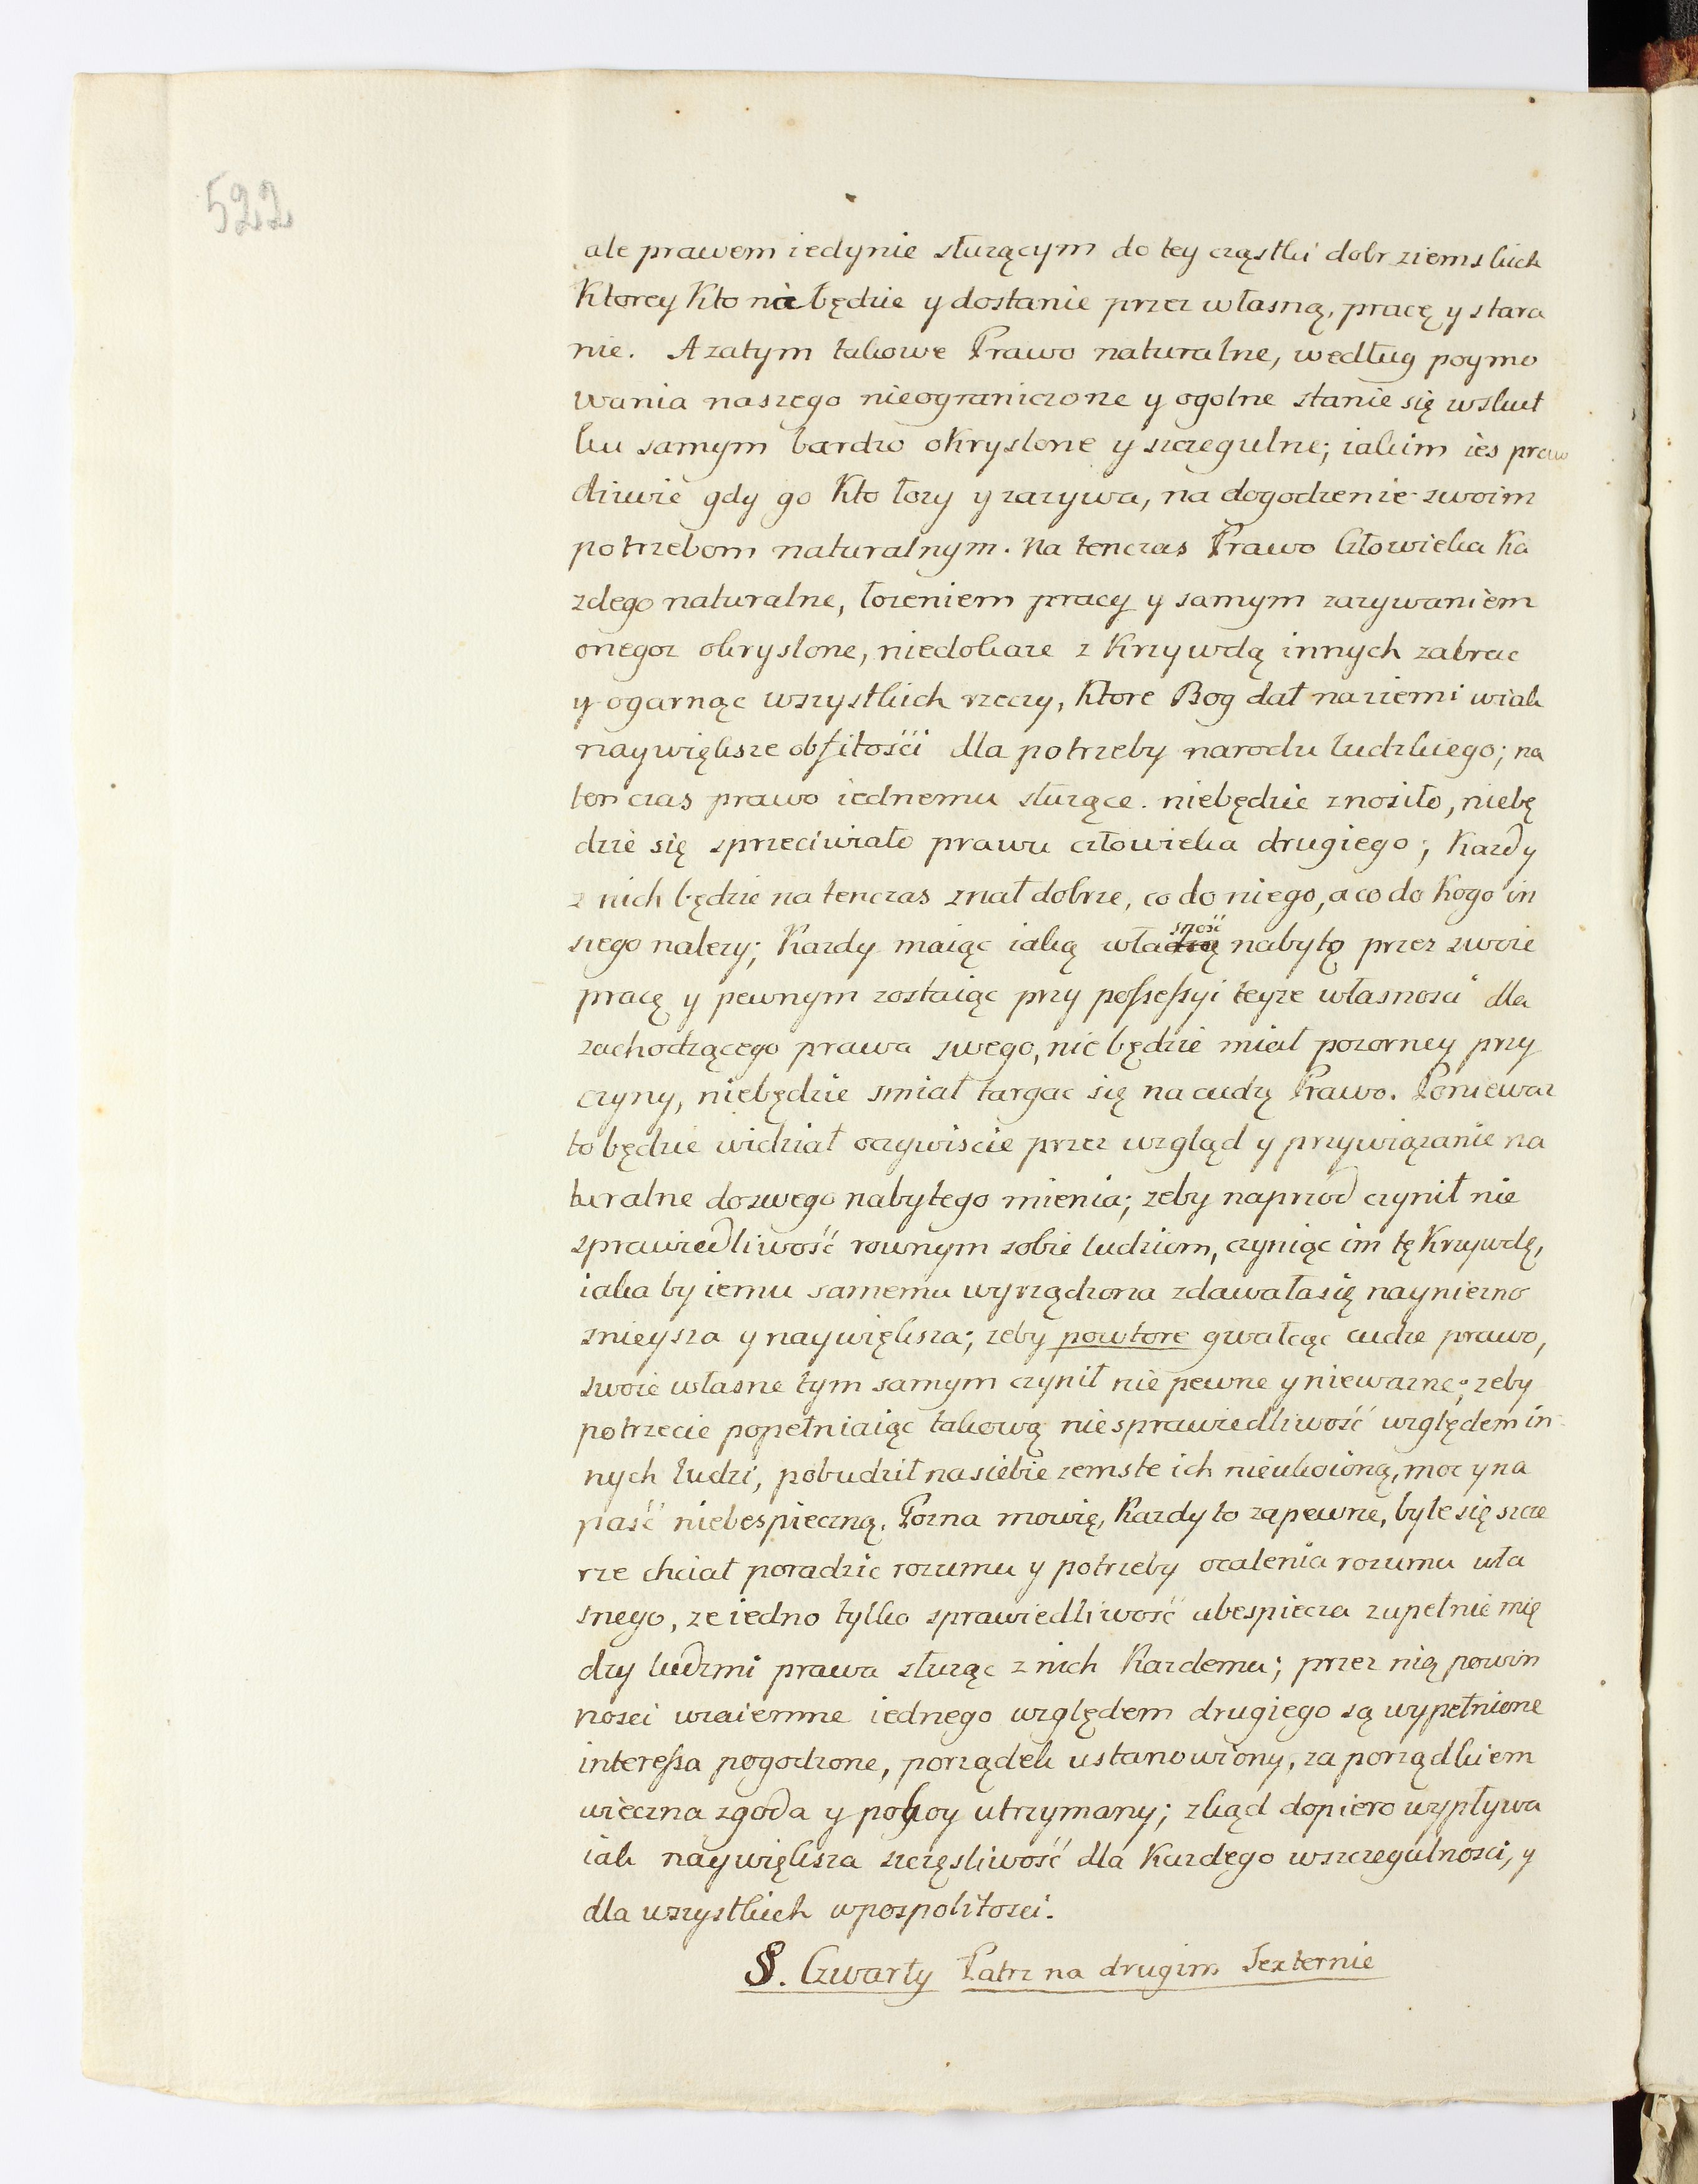 522
ale prawem iedynie słuzącym do tey cząstki dobr ziemskich
Ktorey Kto nabędzie y dostanie przez własną, pracę y stara
nie. A zatym takowe Prawo naturalne, według poymo
wania naszego nieograniczone y ogolne stanie się wskut
ku samym bardzo okryslone y szczegulne; iakim ies praw
dziwie gdy go Kto łozy y zazywa, na dogodzenie swoim
potrzebom naturalnym. Na tenczas Prawo Człowieka Ka
zdego naturalne, łozeniem pracy y samym zazywaniem
onegoz okryslone, niedokaze z Krzywdą innych zabrac
y ogarnąc wszystkich rzeczy, Ktore Bog dał na ziemi wiak
naywiększe obfitości dla potrzeby narodu ludzkiego; na
ten czas prawo iednemu słuzące. niebędzie znosiło, niebę
dzie się sprzeciwiało prawu człowieka drugiego; Kazdy
z nich będzie na tenczas znał dobrze, co do niego, a co do Kogo in
szego nalezy; Kazdy maiąc iaką własność nabytą przez swoie
pracę y pewnym zostaiąc przy possessyi teyze własnosci dla
zachodzącego prawa swego, nie będzie miał pozorney przy
czyny, niebędzie smiał targac się na cudzę Prawo. Poniewaz
to będzie widział oczywiscie przez wzgląd y przywiązanie na
turalne do swego nabytego mienia; zeby naprzod czynił nie
sprawiedliwość rownym sobie ludziom, czyniąc im tę Krzywdę,
iaka by iemu samemu wyrządzona zdawała się nayniezno
snieysza y naywiększa; zeby powtore gwałcąc cudze prawo,
swoie własne tym samym czynił nie pewne y niewazne; zeby
potrzecie popełniaiąc takową niesprawiedliwość względem in-
nych ludzi, pobudził na siebie zemste ich nieukoioną, moc y na
paść niebespieczną. Pozna mowię, Kazdy to zapewne, byle się szcze
rze chciał poradzic rozumu y potrzeby ocalenia rozumu wła
snego, ze iedno tylko sprawiedliwość ubespiecza zupełnie mię
dzy ludzmi prawa słuząc z nich Kazdemu; przez nią powin
nosci wzaiemne iednego względem drugiego są wypełnione
interessa pogodzone, porządek ustanowiony, za porządkiem
wieczna zgoda y pokoy utrzymany; zkąd dopiero wypływa
iak naywiększa szczęsliwość dla Kazdego wszczegulnosci, y
dla wszystkich wpospolitosci.
§. Czwarty Patrz na drugim Sexternie